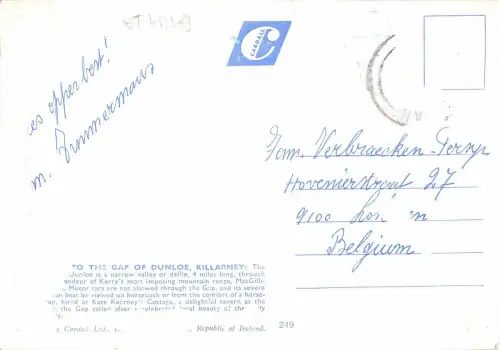 CARDALL
es opperbest!
m. Zimmermans
Fam. Verbraecken
Hovenierstraat 27
9100
Belgium
TO THE GAP OF DUNLOE, KILLARNEY: The
Dunloe is a narrow valley or defile, 4 miles long, through
andeur of Kerry's most imposing mountain range, MacGilli
Motor cars are not allowed through the Gap, and its severe
an best be viewed on horseback or from the comfort of a horse-
hired at Kate Kearney's Cottage, a delightful tavern at the
the Gap called after a celebrated local beauty of the
Cardall Ltd., Republic of Ireland.
249